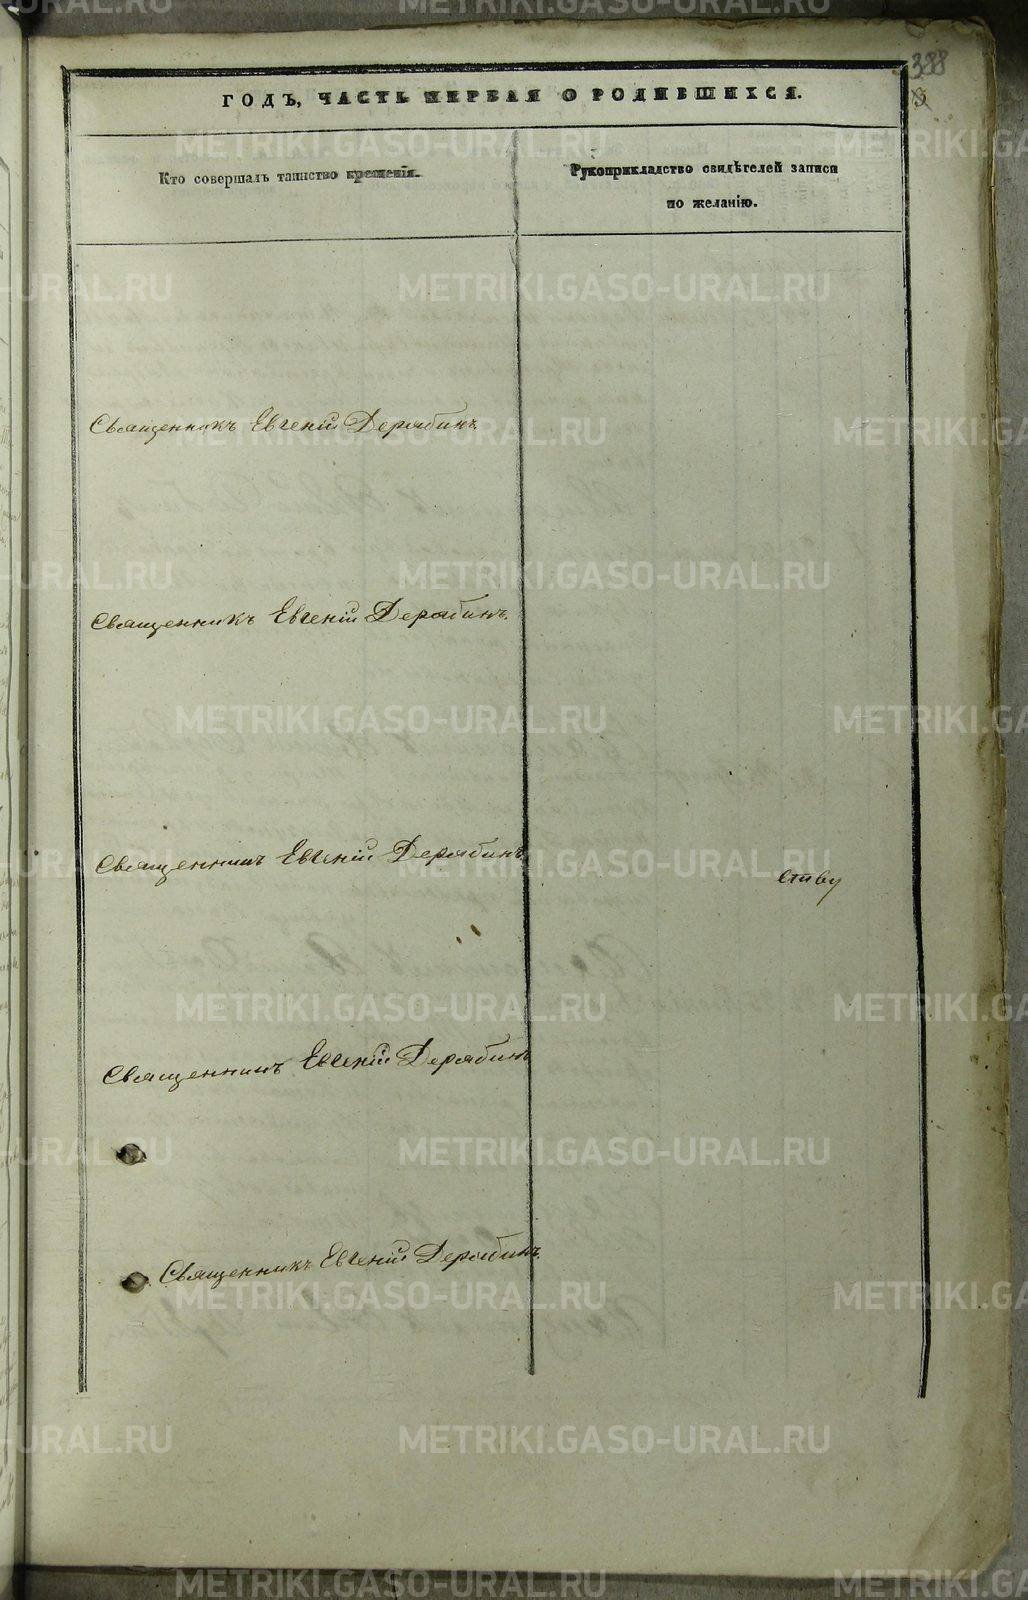 388
ГОДЪ, ЧАСТЬ ПЕРВАЯ О РОДИВШИХСЯ.
Кто совершалъ таинство крещенія.
Рукоприкладство свидѣтелей записи
по желанію.
Священникъ Евгеній Дерябинъ
Священникъ Евгеній Дерябинъ.
Священникъ Евгеній Дерябинъ
ству
Священникъ Евгеній Дерябинъ
Священникъ Евгеній Дерябинъ.
METRIKI.GASO-URAL.RU